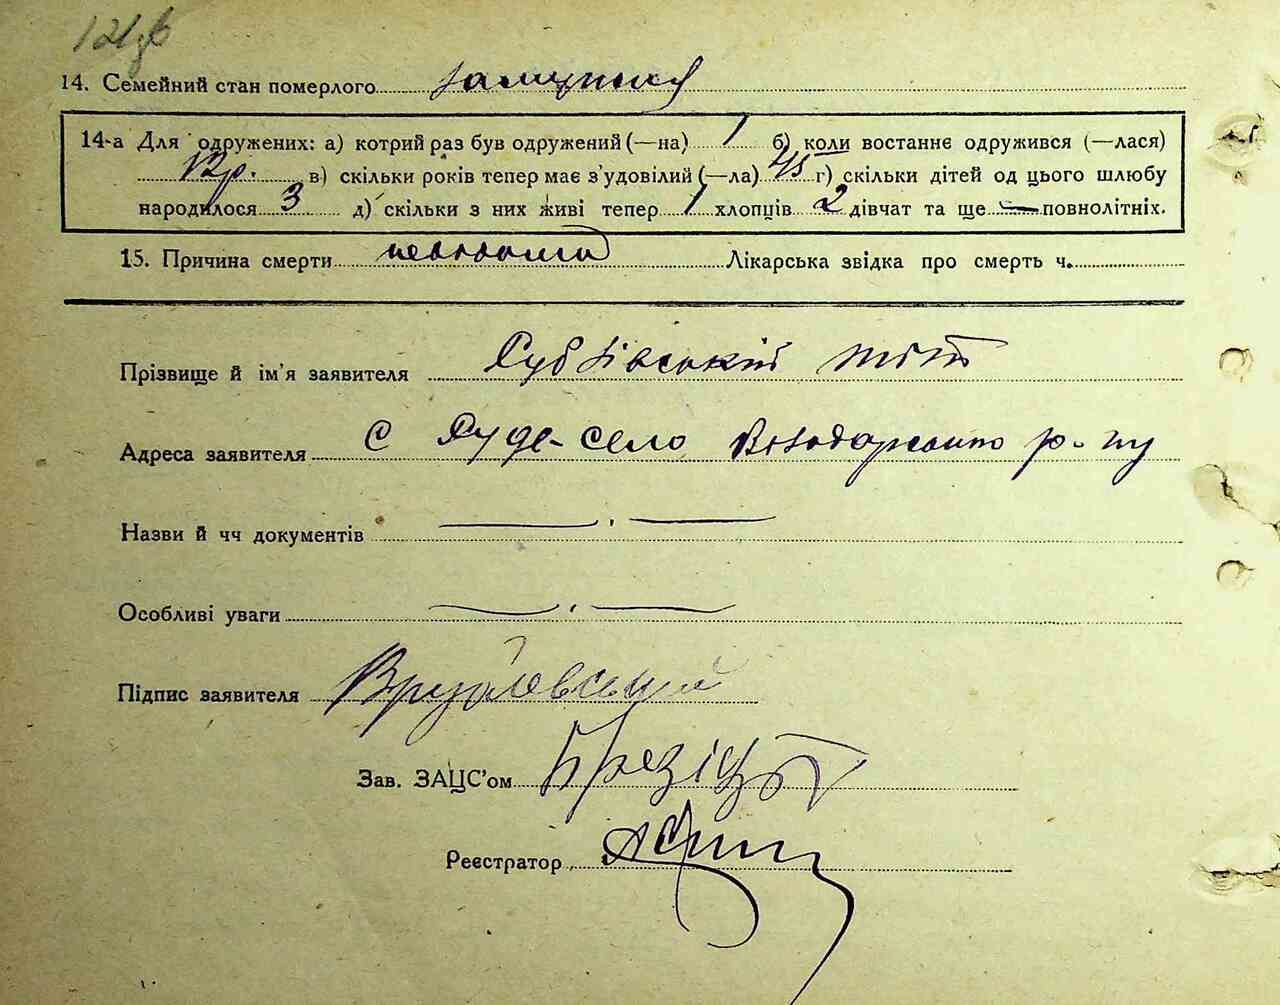 14. Семейний стан померлого замужня
14-а Для одружених: а) котрий раз був одружений (—на) 1 б) коли востаннє одружився (—лася)
12 р. в) скільки років тепер має з'удовілий (—ла) 45 г) скільки дітей од цього шлюбу
народилося 3 д) скільки з них живі тепер 1 хлопців 2 дівчат та ще — повнолітніх.
15. Причина смерти невідома Лікарська звідка про смерть ч.
Прізвище й ім'я заявителя
Адреса заявителя с Руде-село Володарського р-ну
Назви й чч документів —·—
Особливі уваги —·—
Підпис заявителя
Зав. ЗАЦС'ом
Реєстратор